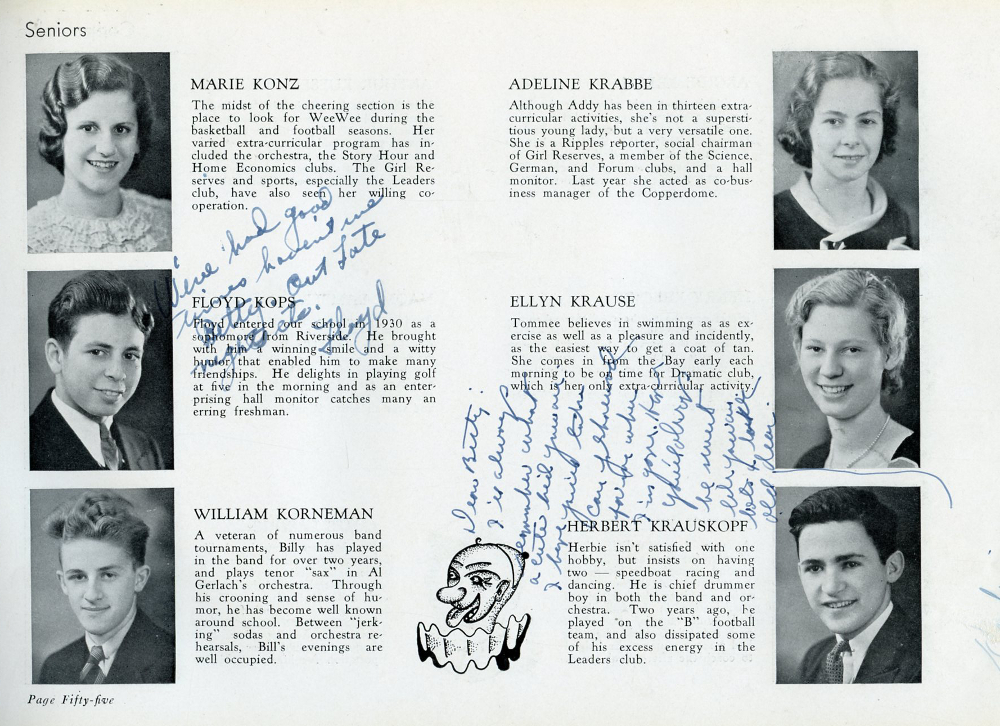 Seniors
MARIE KONZ
The midst of the cheering section is the
place to look for WeeWee during the
basketball and football seasons. Her
varied extra-curricular program has in-
cluded the orchestra, the Story Hour and
Home Economics clubs. The Girl Re-
serves and sports, especially the Leaders
club, have also seen her willing co-
operation.
We've had good
times haven't we
Betty. Out late
nights etc.
Floyd
FLOYD KOPS
Floyd entered our school in 1930 as a
sophomore from Riverside. He brought
with him a winning smile and a witty
humor that enabled him to make many
friendships. He delights in playing golf
at five in the morning and as an enter-
prising hall monitor catches many an
erring freshman.
WILLIAM KORNEMAN
A veteran of numerous band
tournaments, Billy has played
in the band for over two years,
and plays tenor "sax" in Al
Gerlach's orchestra. Through
his crooning and sense of hu-
mor, he has become well known
around school. Between "jerk-
ing" sodas and orchestra re-
hearsals, Bill's evenings are
well occupied.
ADELINE KRABBE
Although Addy has been in thirteen extra-
curricular activities, she's not a supersti-
tious young lady, but a very versatile one.
She is a Ripples reporter, social chairman
of Girl Reserves, a member of the Science,
German, and Forum clubs, and a hall
monitor. Last year she acted as co-bus-
iness manager of the Copperdome.
ELLYN KRAUSE
Tommee believes in swimming as as ex-
ercise as well as a pleasure and incidently,
as the easiest way to get a coat of tan.
She comes in from the Bay early each
morning to be on time for Dramatic club,
which is her only extra-curricular activity.
Dear Betty:
I'll always
remember what
a cute kid you are
I hope you'll
HERBERT KRAUSKOPF
Herbie isn't satisfied with one
hobby, but insists on having
two — speedboat racing and
dancing. He is chief drummer
boy in both the band and or-
chestra. Two years ago, he
played on the "B" football
team, and also dissipated some
of his excess energy in the
Leaders club.
Page Fifty-five